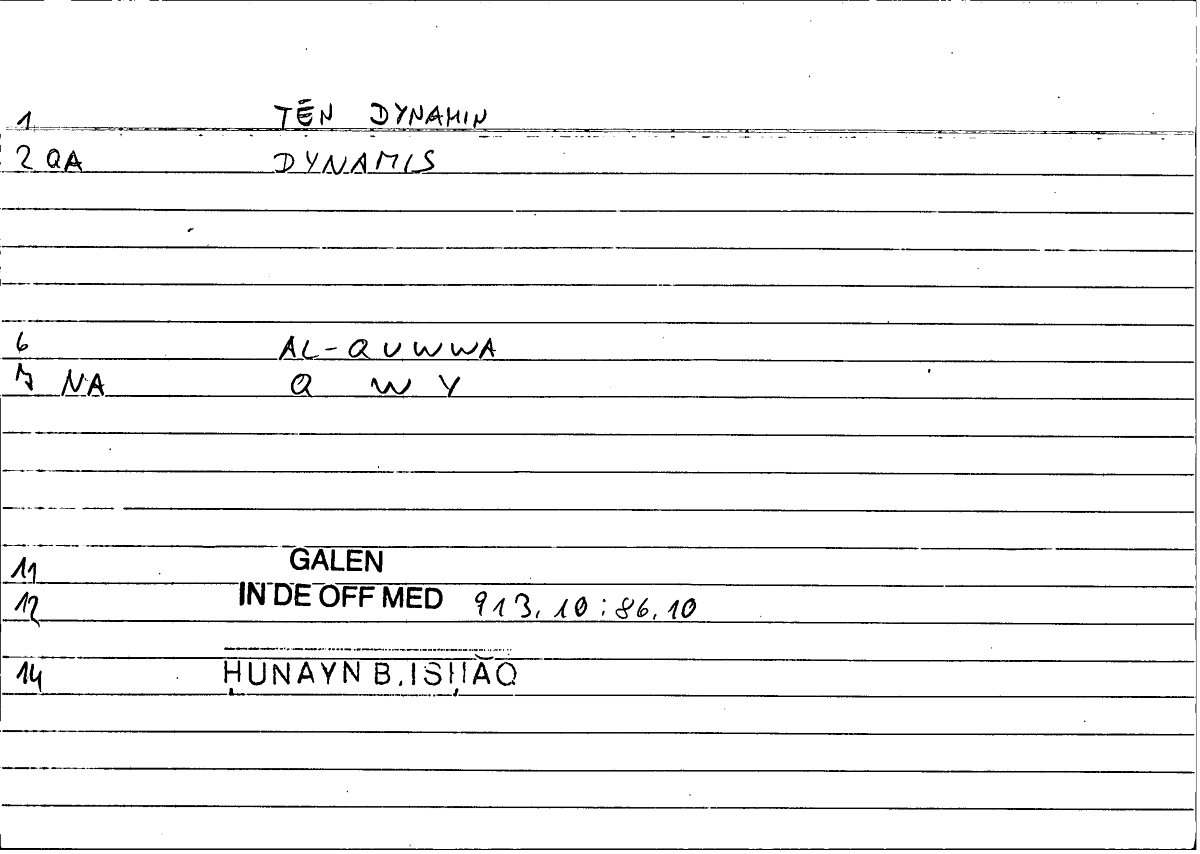 1 TĒN DYNAMIN
2 QA DYNAMIS
6 AL-QUWWA
7 NA Q W Y
11 GALEN
12 IN DE OFF MED 913,10:86,10
14 ḤUNAYN B. ISḤĀQ